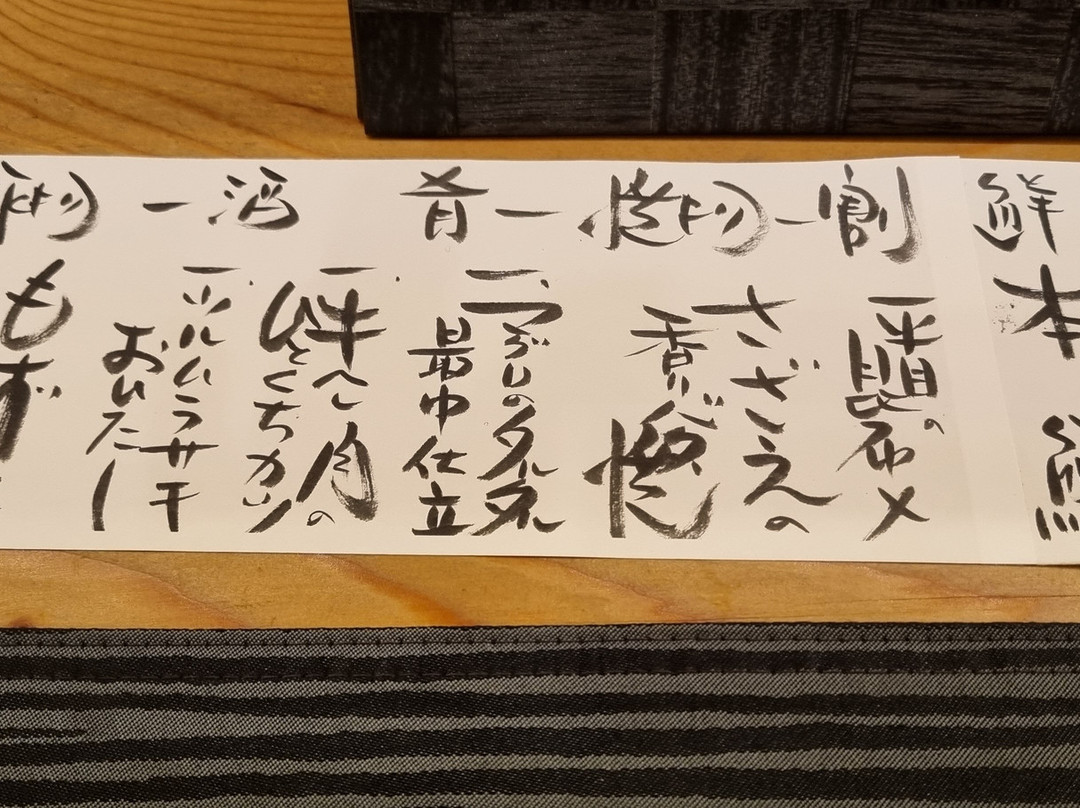 鮮
割 一 焼物 一 肴
酒 一
本
一 平目の
昆布〆
一 さざえの
香り焼
一 タルタル
最中仕立
一 牛ヘレ肉の
ひとくちカツ
一 ツルムラサキ
おひたし
もず